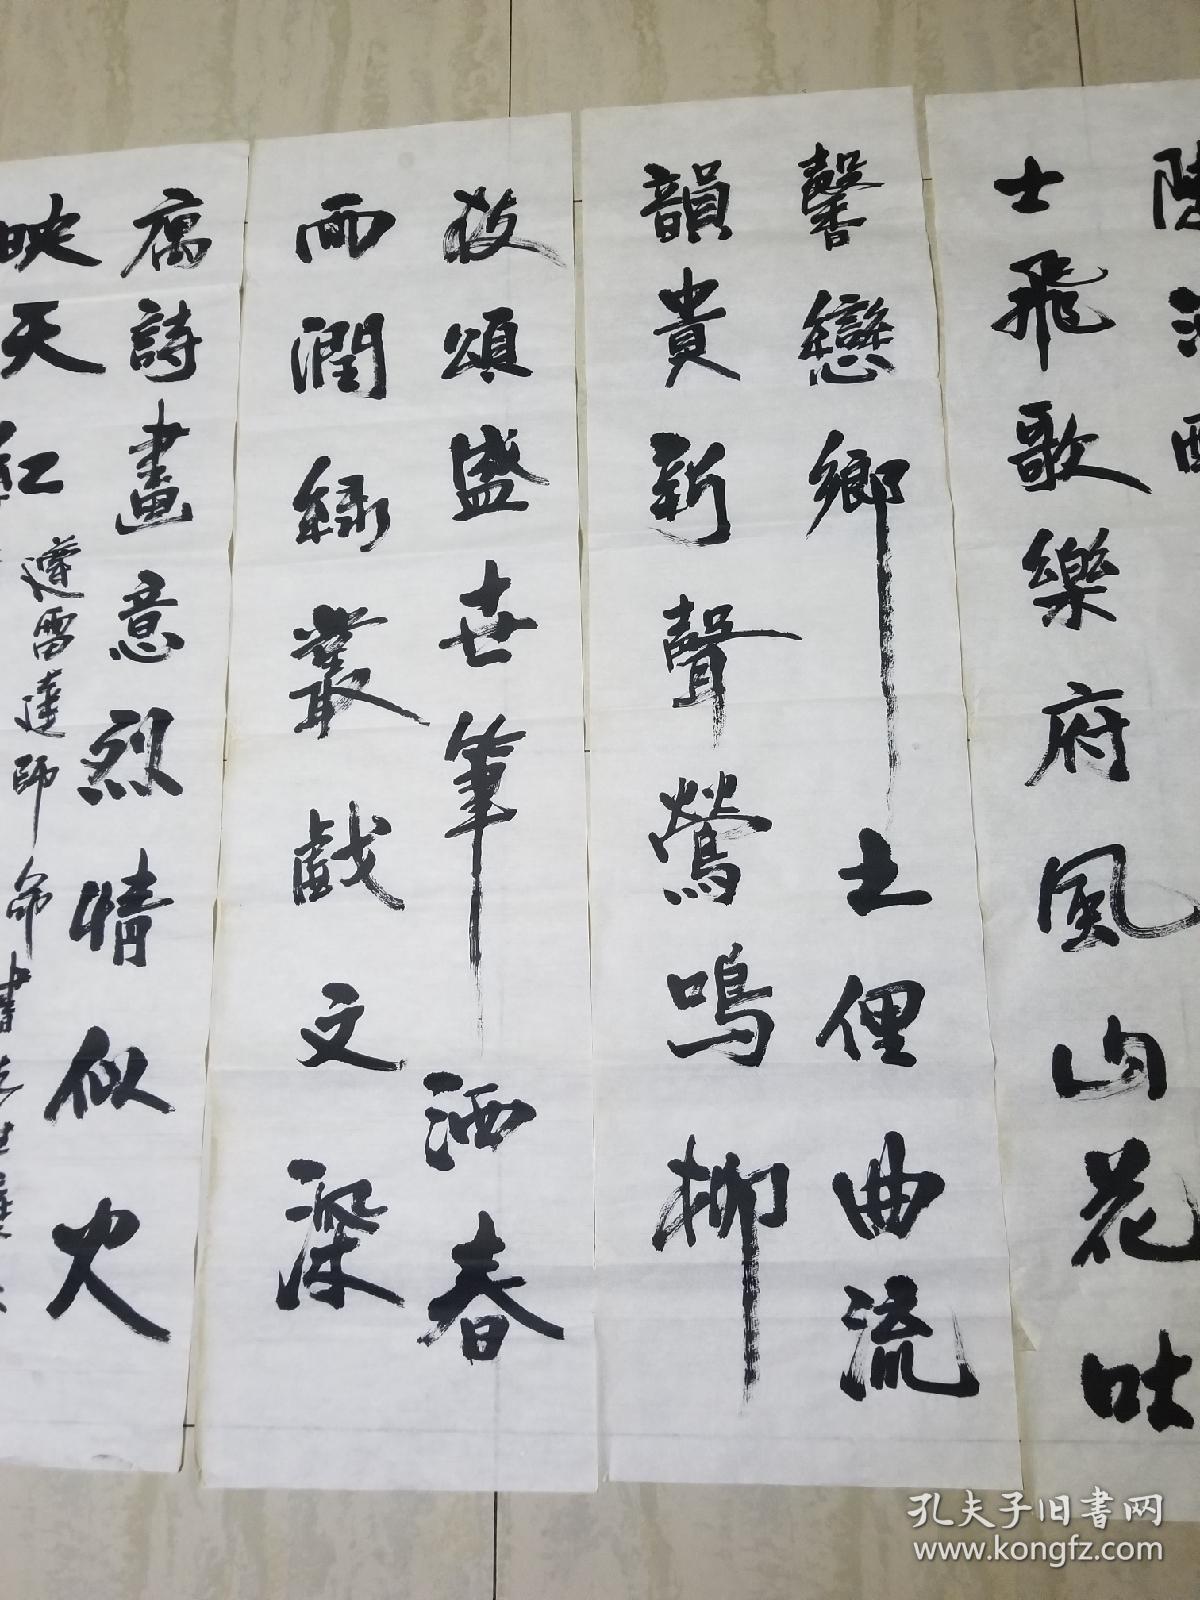 士飛歌樂府風山花吐
馨戀鄉土俚曲流
韻貴新聲鶯鳴柳
放頌盛世筆洒春
雨潤綠叢戲文深
寓詩畫意烈情似火
映天紅
遵雷達師命書
孔夫子旧书网
www.kongfz.com